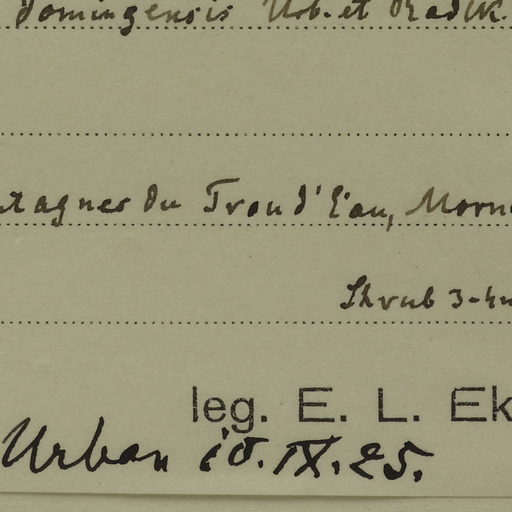 domingensis Urb. et Radlk.
tagnes du Trou d'Eau, Morn
Shrub 3-4m
leg. E. L. Ek
Urban 10.IX.25.